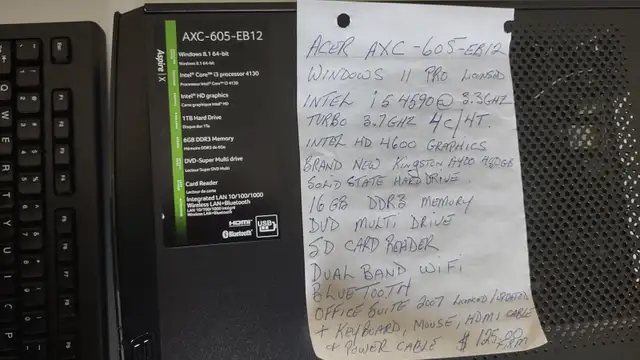 AXC-605-EB12
Windows 8.1 64-bit
Windows 8.1 64-bit
Intel® Core™ i3 processor 4130
Processeur Intel® Core™ i3 4130
Intel® HD graphics
Carte graphique Intel® HD
1TB Hard Drive
Disque dur 1To
6GB DDR3 Memory
Mémoire DDR3 de 6Go
DVD-Super Multi drive
Lecteur Super DVD Multi
Card Reader
Lecteur de carte
Integrated LAN 10/100/1000
Wireless LAN+Bluetooth
LAN 10/100/1000 intégré
Wireless LAN+Bluetooth
HDMI
Bluetooth
USB
Aspire X
ACER AXC-605-EB12
WINDOWS 11 PRO LICENSED
INTEL i5 4590@ 3.3GHZ
TURBO 3.7GHZ 4C/4T.
INTEL HD 4600 GRAPHICS
BRAND NEW KINGSTON A400 480GB
SOLID STATE HARD DRIVE.
16GB DDR3 MEMORY
DVD MULTI DRIVE
SD CARD READER
DUAL BAND WIFI
BLUETOOTH
OFFICE SUITE 2007 LICENSED/UPDATED
+ KEYBOARD, MOUSE, HDMI CABLE
+ POWER CABLE $125.00
FIRM